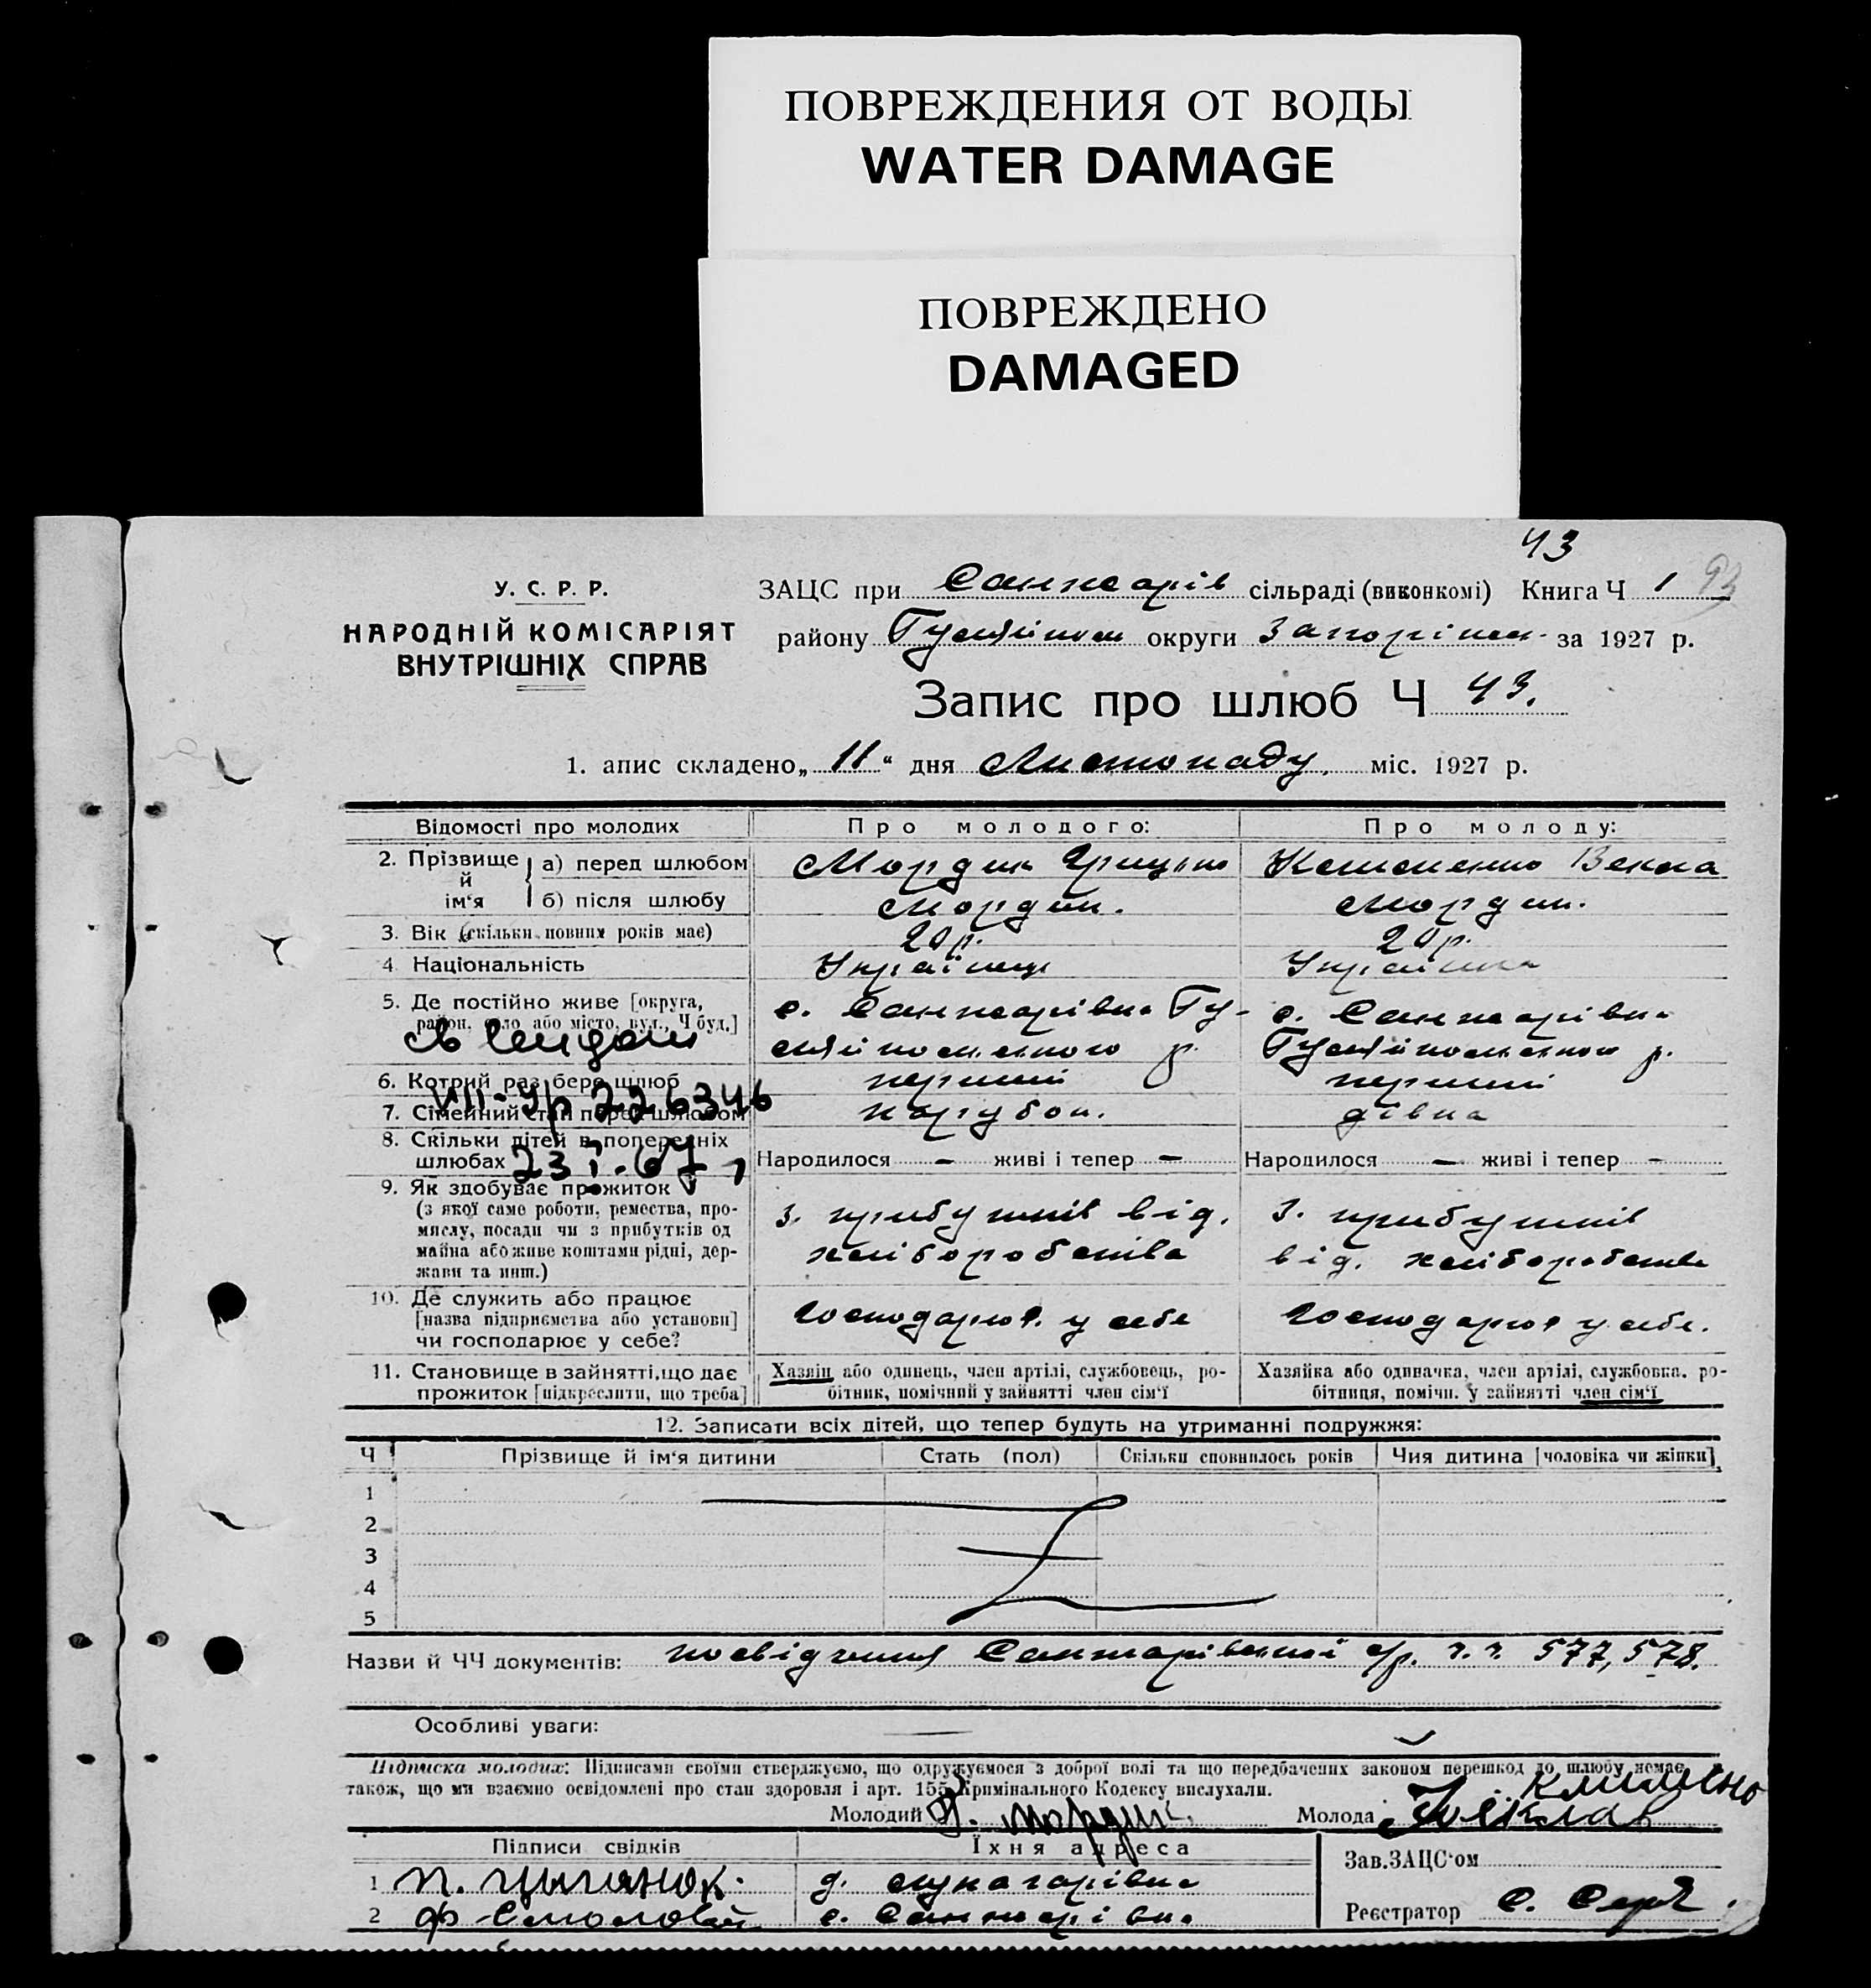 ПОВРЕЖДЕНИЯ ОТ ВОДЫ
WATER DAMAGE
ПОВРЕЖДЕНО
DAMAGED
43
93
У. С. Р. Р.
НАРОДНІЙ КОМІСАРІЯТ
ВНУТРІШНІХ СПРАВ
ЗАЦС при Санжарів сільраді (виконкомі) Книга Ч 1
району Гуляйпол округи Запоріж за 1927 р.
Запис про шлюб Ч 43.
1. апис складено „ 11 “ дня Листопаду міс. 1927 р.
Відомості про молодих Про молодого: Про молоду:
2. Прізвище й ім‘я
а) перед шлюбом Мордик Грицько
б) після шлюбу Мордик. Мордик.
3. Вік (скільки повних років має) 20 р. 20 р.
4 Національність Українець Українка
5. Де постійно живе [округа, район, село або місто, вул., Ч буд.]
с. Санжарівка Гуляйпольського р. с. Санжарівка Гуляйпольського р.
6. Котрий раз бере шлюб перший перший
7. Сімейний стан перед шлюбом парубок. дівка
VII-УР 226346
8. Скільки дітей в попередніх шлюбах Народилося — живі і тепер — Народилося — живі і тепер —
23 I. 67
9. Як здобуває прожиток
(з якої саме роботи, ремества, про-
мислу, посади чи з прибутків од
майна або живе коштами рідні, дер-
жави та инш.)
з прибутків від. хліборобства
з. прибутків від. хліборобства
10. Де служить або працює
[назва підприємства або установи]
чи господарює у себе?
Господарює у себе Господарює у себе.
11. Становище в зайнятті, що дає
прожиток [підкреслити, що треба]
Хазяін або одинець, член артілі, службовець, ро-
бітник, помічний у зайнятті член сім‘ї
Хазяйка або одиначка, член артілі, службовка, ро-
бітниця, помічн. у зайнятті член сім‘ї
12. Записати всіх дітей, що тепер будуть на утриманні подружжя:
Ч Прізвище й ім‘я дитини Стать (пол) Скільки сповнилось років Чия дитина [чоловіка чи жінки]
1
2
3
4
5
Назви й ЧЧ документів: посвідчення Санжарівської с/р. ч.ч. 577, 578.
Особливі уваги: —
Підписка молодих: Підписами своїми стверджуємо, що одружуємося з доброї волі та що передбачених законом перешкод до шлюбу немає,
також, що ми взаємно освідомлені про стан здоровля і арт. 155 Кримінального Кодексу вислухали.
Молодий Г. Мордик Молода
Підписи свідків Їхня адреса
1 П. Цыганок.
2 с. Санжарівка
Зав.ЗАЦС‘ом
Реєстратор